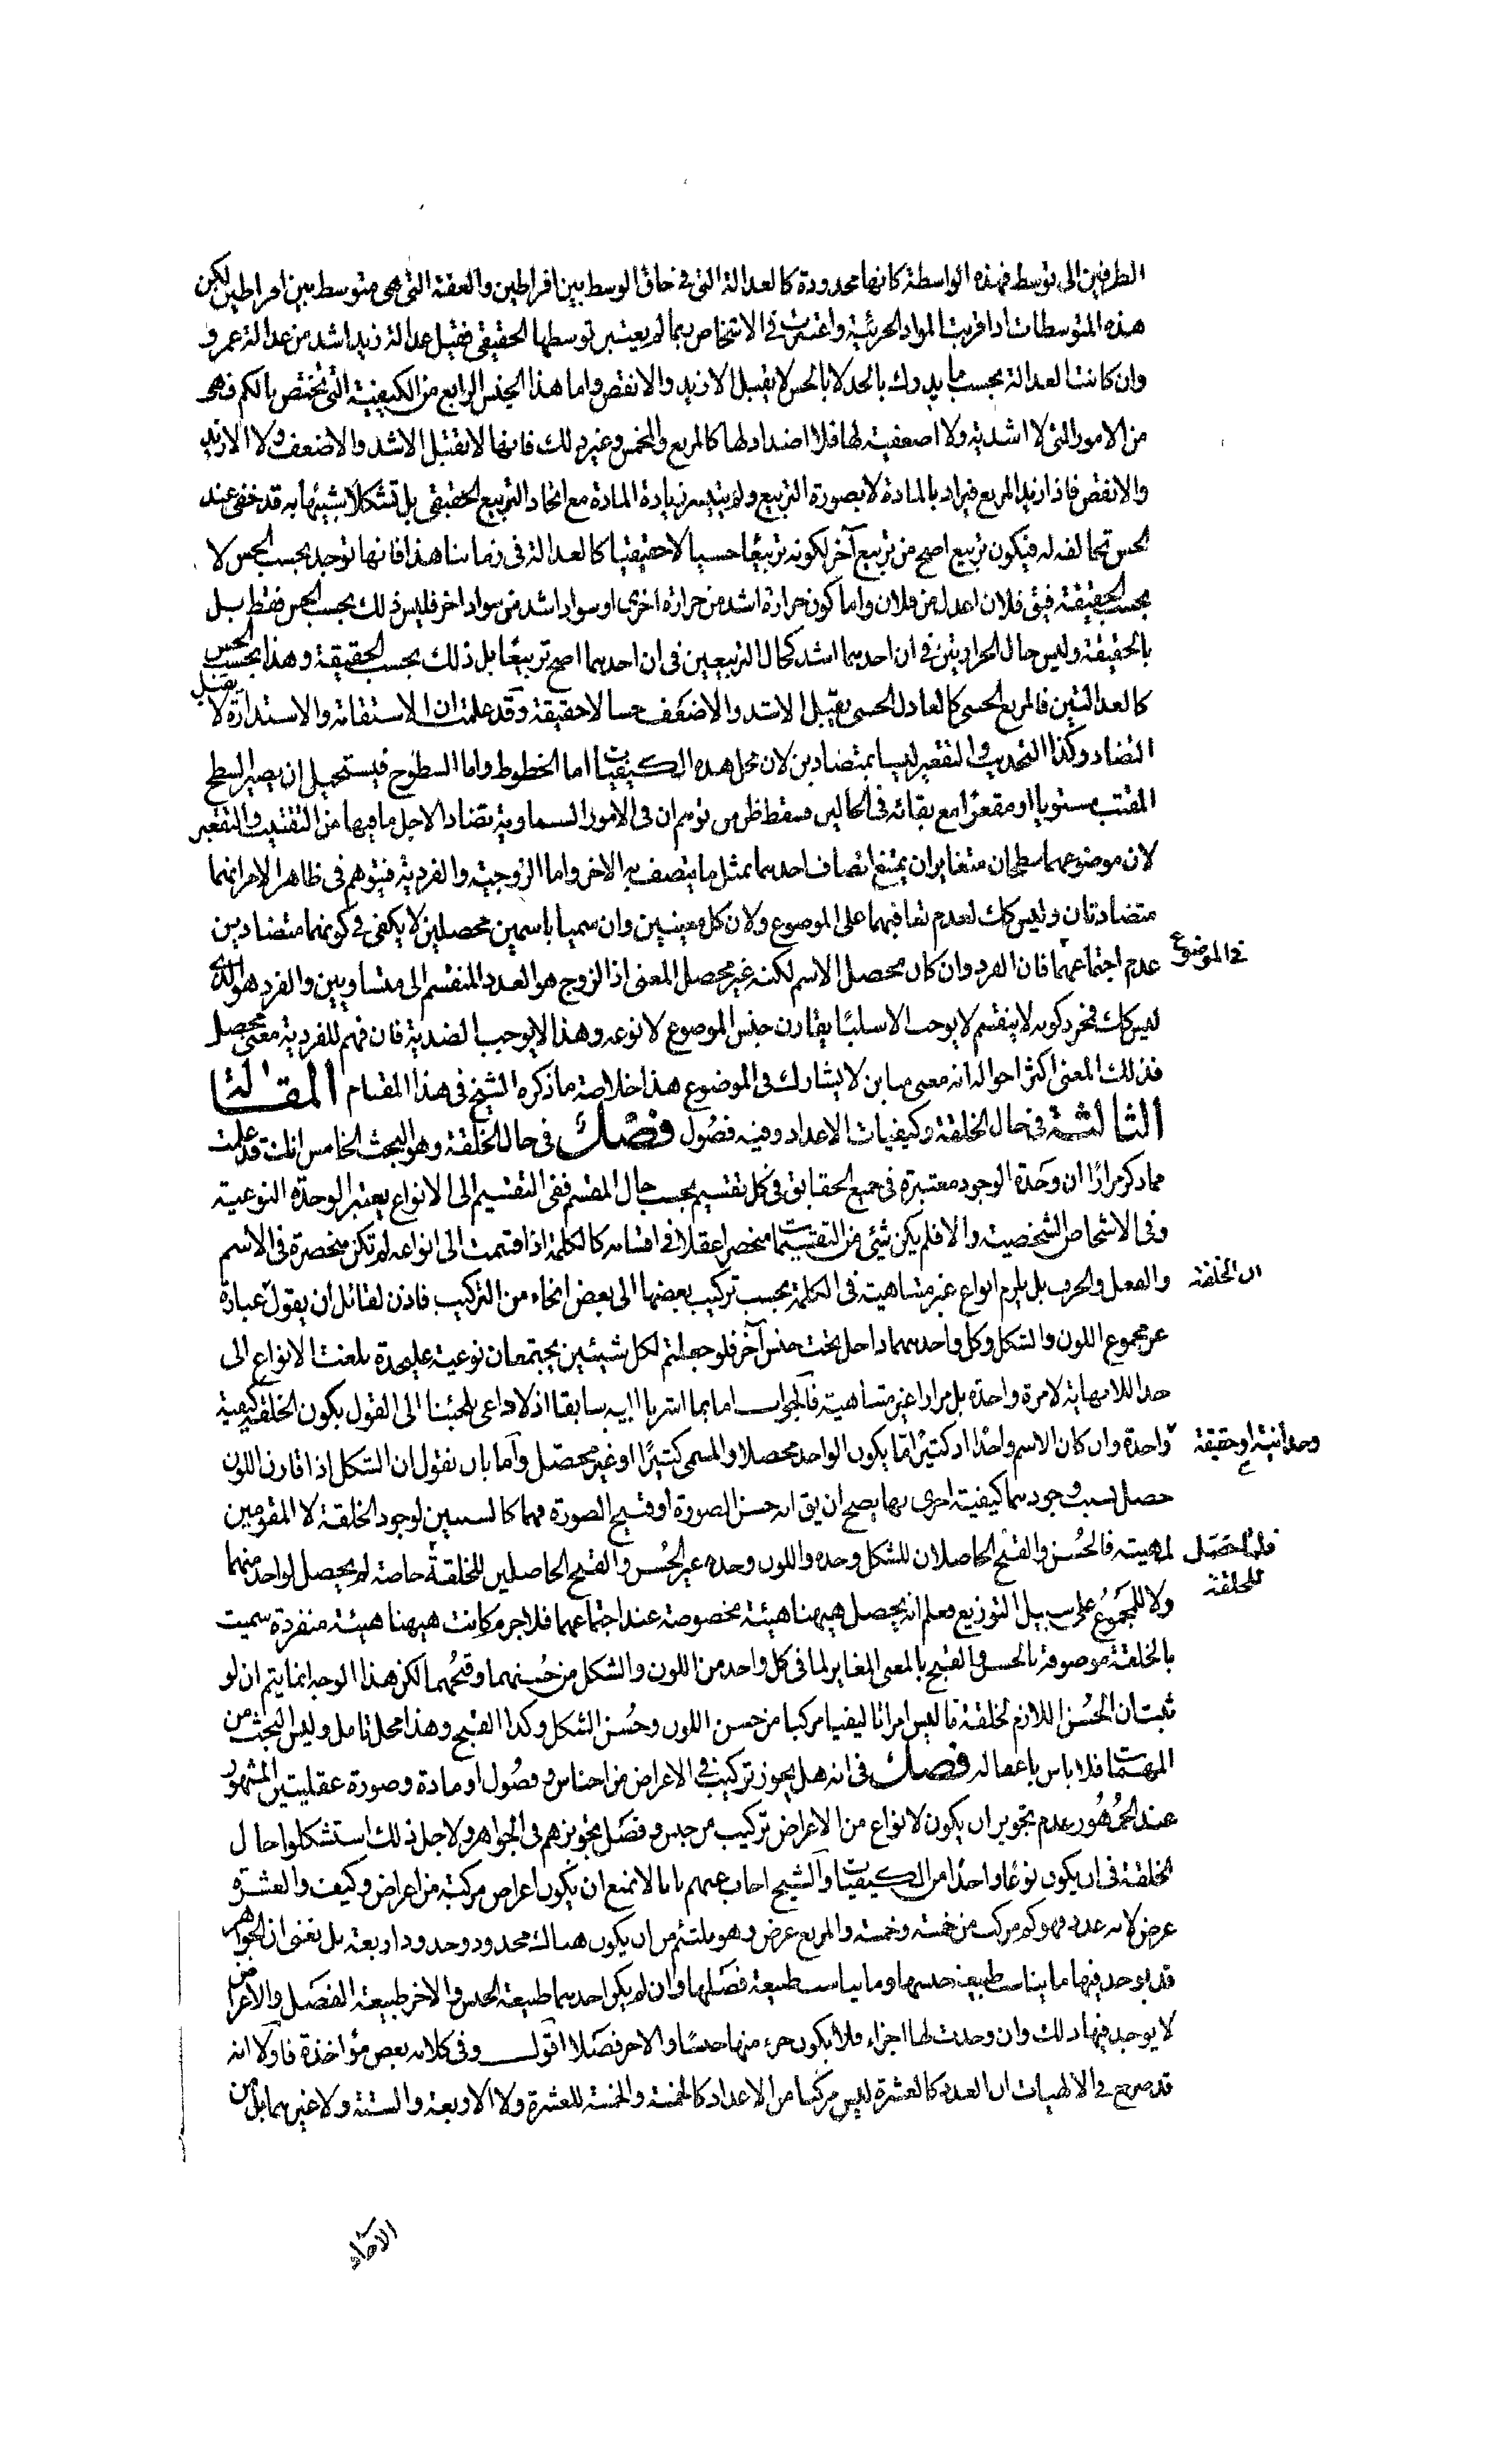 الطرفين الى توسط فهذه الواسطة كانها محدودة كالعدالة التى فى حاق الوسط بين افراطين والعفة التى هى متوسط بين افراطين لكن
هذه المتوسطات اذا قرنت المواد الجزئية واعتبرت فى الاشخاص بما لم يعتبر توسطها الحقيقى فقيل عدالة زيد اشد من عدالة عمرو
وان كانت العدالة بحسب ما يدرك بالحد لا بالحس لا يقبل الازيد والانقص واما هذا الجنس الرابع من الكيفية التى تختص بالكم فهى
من الامور التى لا اشدية ولا اضعفية لها فلا اضداد لها كالمربع والمخمس وغير ذلك فانها لا تقبل الاشد والاضعف ولا الازيد
والانقص فاذا زيد المربع فيزاد بالمادة لا بصورة التربيع ولم يتيسر زيادة المادة مع اتحاد التربيع الحقيقى بل تشكلا شبيها به قد خفى عند
الحس تخالفه له فيكون تربيع اصح من تربيع آخر لكونه تربيعًا حسيا لا حقيقيا كالعدالة فى زماننا هذا فانها توجد بحسب الحس لا
بحسب الحقيقة فيق فلان اعدل من فلان واما كون حرارة اشد من حرارة اخرى او سواد اشد من سواد اخر فليس ذلك بحسب الحس فقط بل
بالحقيقة وليس حال الحرارتين فى ان احدهما اشد كحال التربيعين فى ان احدهما اصح تربيعًا بل ذلك بحسب الحقيقة وهذا بحسب الحس
كالعدالتين فالمربع الحسى كالعادل الحسى يقبل الاشد والاضعف حسا لا حقيقة وقد علمت ان الاستقامة والاستدارة لا يقبل
التضاد وكذا التحديب والتقعير ليسا بمتضادين لان محل هذه الكيفيات اما الخطوط واما السطوح فيستحيل ان يصير السطح
المقبب مستويا او مقعرًا مع بقائه فى الحالين فسقط ظن من توهم ان فى الامور السماوية تضادا لاجل ما فيها من التقبيب والتقعير
لان موضوعهما سطحان متغايران يمتنع اتصاف احدهما بمثل ما يتصف به الاخر واما الزوجية والفردية فيتوهم فى ظاهر الامر انهما
متضادتان وليس كك لعدم تعاقبهما على الموضوع ولان كل معنيين وان سميا باسمين محصلين لا يكفى فى كونهما متضادين
عدم اجتماعهما فان الفرد وان كان محصل الاسم لكنه غير محصل المعنى اذ الزوج هو العدد المنقسم الى متساويين والفرد هو الذى
فى الموضوع
ليس كك فمجرد كونه لا ينقسم لا يوجب الا سلبًا يقارن جنس الموضوع لا نوعه وهذا لا يوجب الضدية فان فهم للفردية معنى محصل
فذلك المعنى اكثر احواله انه معنى مباين لا يشارك فى الموضوع هذا خلاصة ما ذكره الشيخ فى هذا المقام المقالة
الثالثة فى حال الخلقة وكيفيات الاعداد وفيه فصُول فصل فى حال الخلقة وهو البحث الخامس انك قد علمت
مما ذكر مرارًا ان وَحدة الوجود معتبرة فى جميع الحقايق فى كل تقسيم بحسب حال المقسم ففى التقسيم الى الانواع يعتبر الوحدة النوعية
وفى الاشخاص الشخصية والا فلم يكن شئ من التقسيمات منحصرا عقلا فى اقسامه كالكلمة اذا قسمت الى انواعه لم تكن منحصرة فى الاسم
والفعل والحرف بل يلزم انواع غير متناهية فى الكلمة بحسب تركيب بعضها الى بعض انحاء من التركيب فاذن لقائل أن يقول عبارة
ان الخلقة
عن مجموع اللون والشكل وكل واحد منهما داخل تحت جنس آخر فلو جعلتم لكل شيئين يجتمعان نوعية عليحدة بلغت الانواع الى
حد اللانهاية لا مرة واحدة بل مرارا غير متناهية فالجواب اما بما اشرنا اليه سابقا اذ لا داعى يلجئنا الى القول بكون الخلقة كيفية
واحدة وان كان الاسم واحدًا اذ كثيرًا ما يكون الواحد محصلا والمسمى كثيرًا او غير محصّل وأما بان نقول ان الشكل اذا قارن اللون
حصل بسبب وجودهما كيفية اخرى بها يصح ان يق انه حسن الصورة او قبيح الصورة فهما كالسببين لوجود الخلقة لا المقومين
لمهيته فالحُسن والقبح الحاصلان للشكل وحده واللون وحده غير الحُسن والقبح الحاصلين للخلقة خاصة لم يحصل لواحد منهما
فلما حصَل
للخلقة
ولا للمجمُوع على سبيل التوزيع فعلم انه يحصل هيهنا هيئة مخصوصة عند اجتماعهما فلا جرم كانت هيهنا هيئة منفردة سميت
بالخلقة موصوفة بالحسن والقبح بالمعنى المغاير لما فى كل واحد من اللون والشكل من حُسنهما وقبحُهما لكن هذا الوجه انما يتم ان لو
ثبت ان الحُسن اللازم لخلقة ما ليس امرا تاليفيا مركبا من حسن اللون وحُسن الشكل وكذا القبح وهذا محل تامل وليس البحث من
المهمات فلا باس باغفاله فصل فى انه هل يجوز تركيب فى الاعراض من اجناس وفصُول او مادة وصورة عقليتين المشهور
عند الجمُهُور عدم تجويز ان يكون لانواع من الاعراض تركيب من جنس وفصَل بتجويزهم فى الجواهر ولاجل ذلك استشكلوا حال
الخلقة فى ان يكون نوعًا واحدًا من الكيفيات والشيخ اجاب عنهم بانا لا نمنع ان يكون اعراض مركبة من اعراض وكيف والعشرة
عرض لانه عدد فهو كم مركب من خمسة وخمسة والمربع عرض وهو ملتئم من ان يكون هناك محدود وحدود اربعة بل نعنى ان الجواهر
قد يوجد فيها ما يناسب طبيعة جنسها وما يناسب طبيعة فصَلها وان لم يكن احدهما طبيعة الجنس والاخر طبيعة الفصَل والاعراض
لا يوجد فيها ذلك وان وجدت لها اجزاء فلا يكون جزء منها جنسًا والاخر فصَلا اقول وفى كلامه بعض مؤاخذة فاولا انه
قد صرح فى الالهيات ان العدد كالعشرة ليس مركبا من الاعداد كالخمسة والخمسة للعشرة ولا الاربعة والستة ولا غيرهما بل من
الآحاد